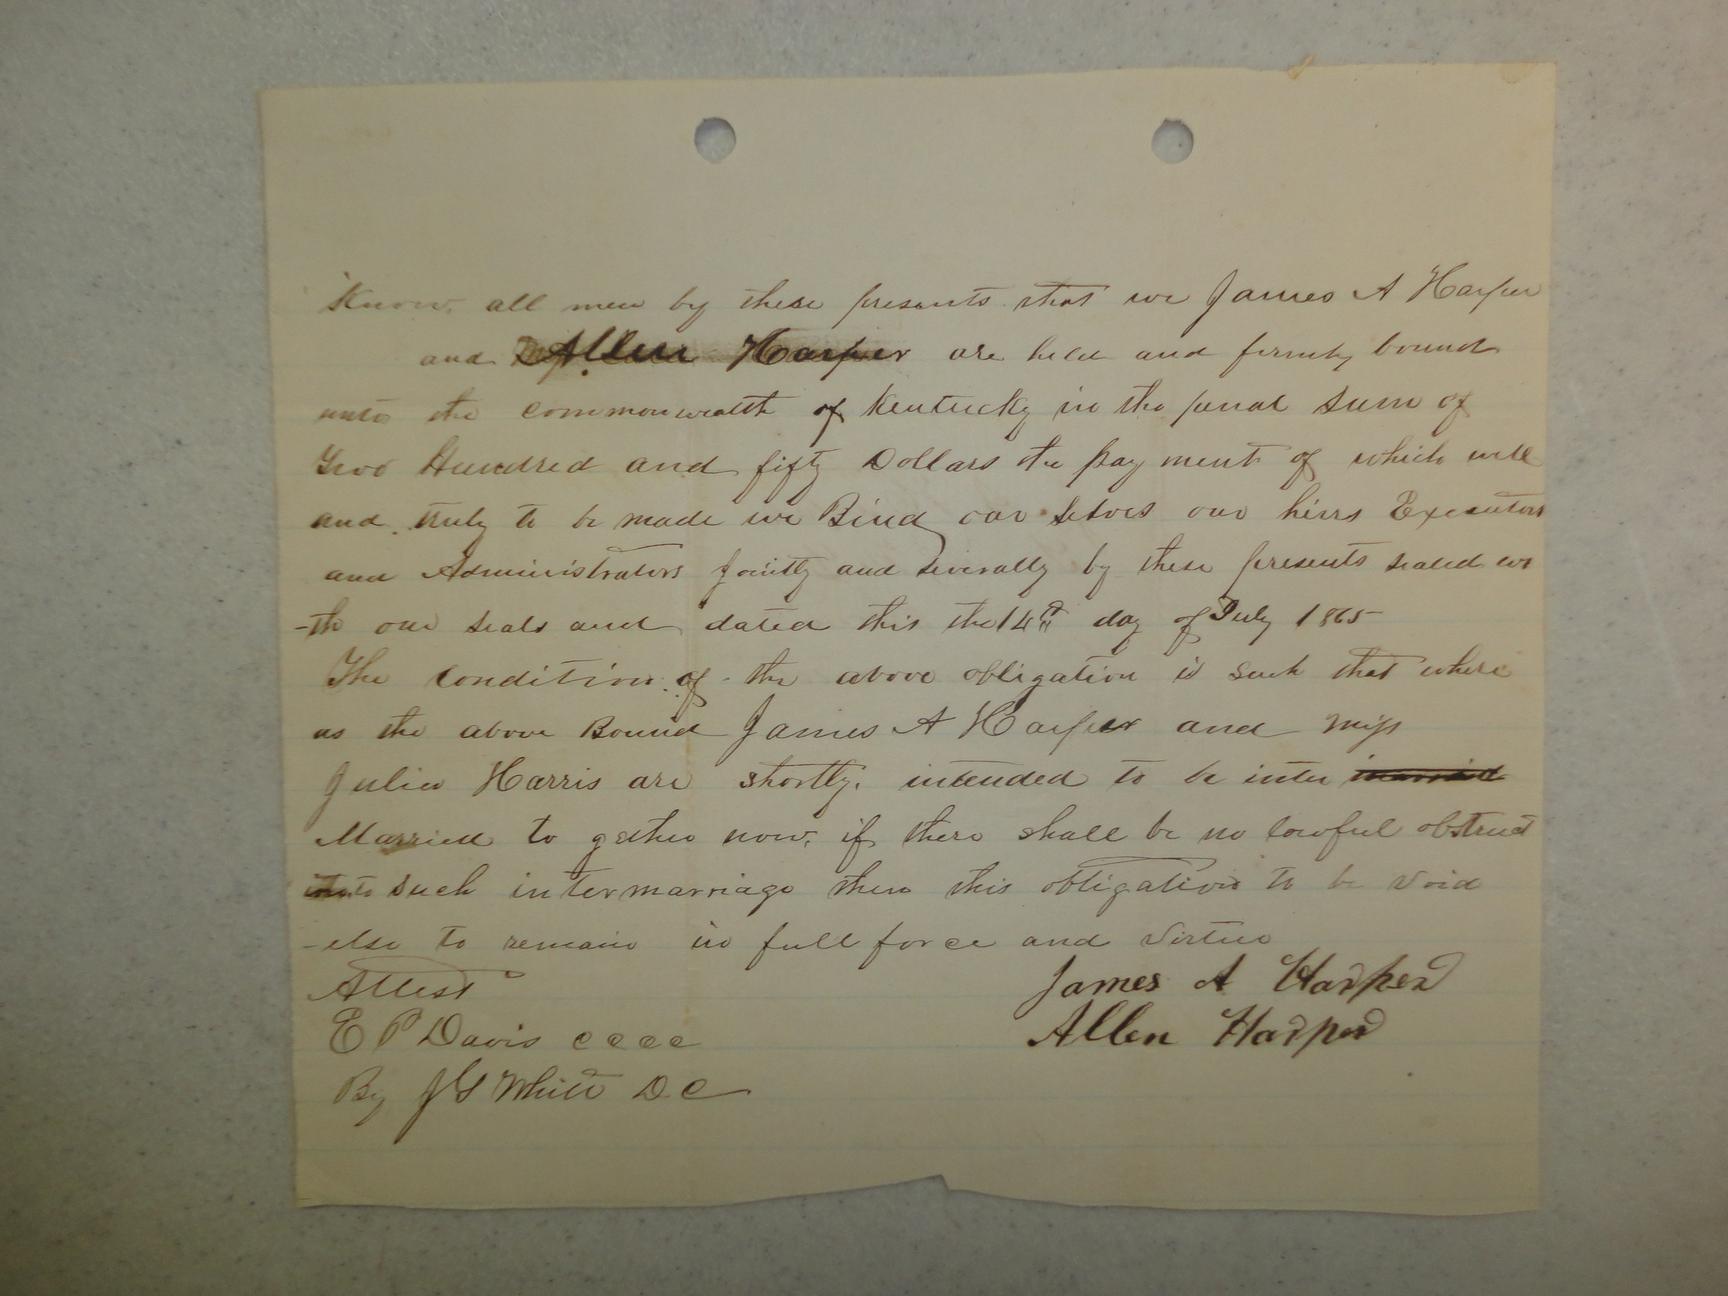 Know all men by these presents that we James A Harper
and Allen Harper are held and firmly bound
unto the commonwealth of Kentucky in the penal sum of
Two Hundred and fifty Dollars the pay ment of which well
and truly to be made we Bind our selves our hiers Executors
and Administrators jointly and severally by these presents sealed wi
-th our seals and dated this the 14th day of July 1865
The condition of the above obligation is such that where
as the above Bound James A Harper and Miss
Julia Harris are shortly intended to be inter married
Married to gether now, if there shall be no lawful obstruct
to such intermarriage then this obligation to be void
-else to remain in full force and virtue
Attest
James A Harper
E P Davis cccc
Allen Harper
By J S White D C